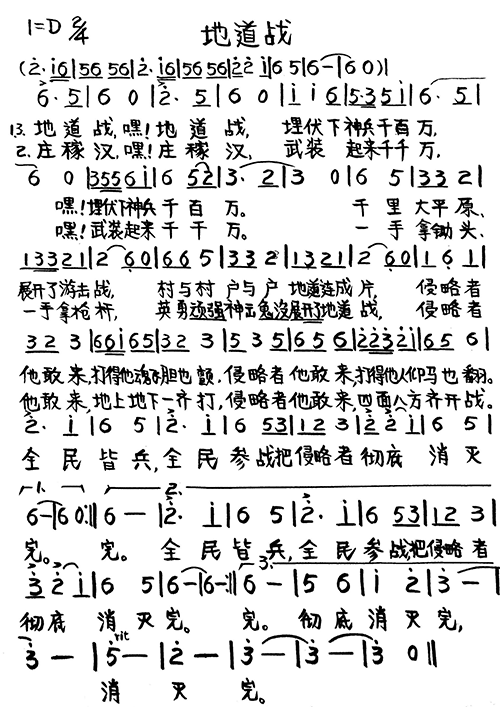 1=D 2/4 地道战
(2·i6|56 56|2·i6|56 56|2 2 i|6 5|6—|6 0)|
6·5|6 0|2· 5|6 0|i i 6|5·3 5 i|6· 5|
13. 地道战,嘿!地道战, 埋伏下神兵千百万,
2. 庄稼汉,嘿!庄稼汉, 武装 起来千千万,
6 0|3556 i|6 52|3· 2|3 0|6 5|33 2|
嘿!埋伏下神兵千百万。 千里大平原、
嘿!武装起来千千万。 一手拿锄头、
13321|2 60|66 5|33 2|1321|2 60|1 6 1|
展开了游击战, 村与村 户与户 地道连成片, 侵略者
一手拿枪杆, 英勇顽强神出鬼没展开了地道战, 侵略者
32 3|66i65|32 3|53 5|65 6|2232i|65 6|
他敢来,打得他魂飞胆也颤,侵略者他敢来,打得他人仰马也翻。
他敢来,地上地下一齐打,侵略者他敢来,四面八方齐开战。
2· i|6 5|2· i|6 53|12 3|2 2 i|6 5|
全民皆兵,全民参战把侵略者彻底 消灭
1. 2.
6—|6 0:||6 —|2· i|6 5|2· i|6 53|12 3|
完。 完。 全民皆兵,全民参战,把侵略者
3.
3 2 i|6 5|6—|6—:||6 —|5 6|i 2|3—|
彻底 消灭完。 完。 彻底消灭完,
rit
3 — |5—|2 —|3—|3—|3 0||
消 灭 完。